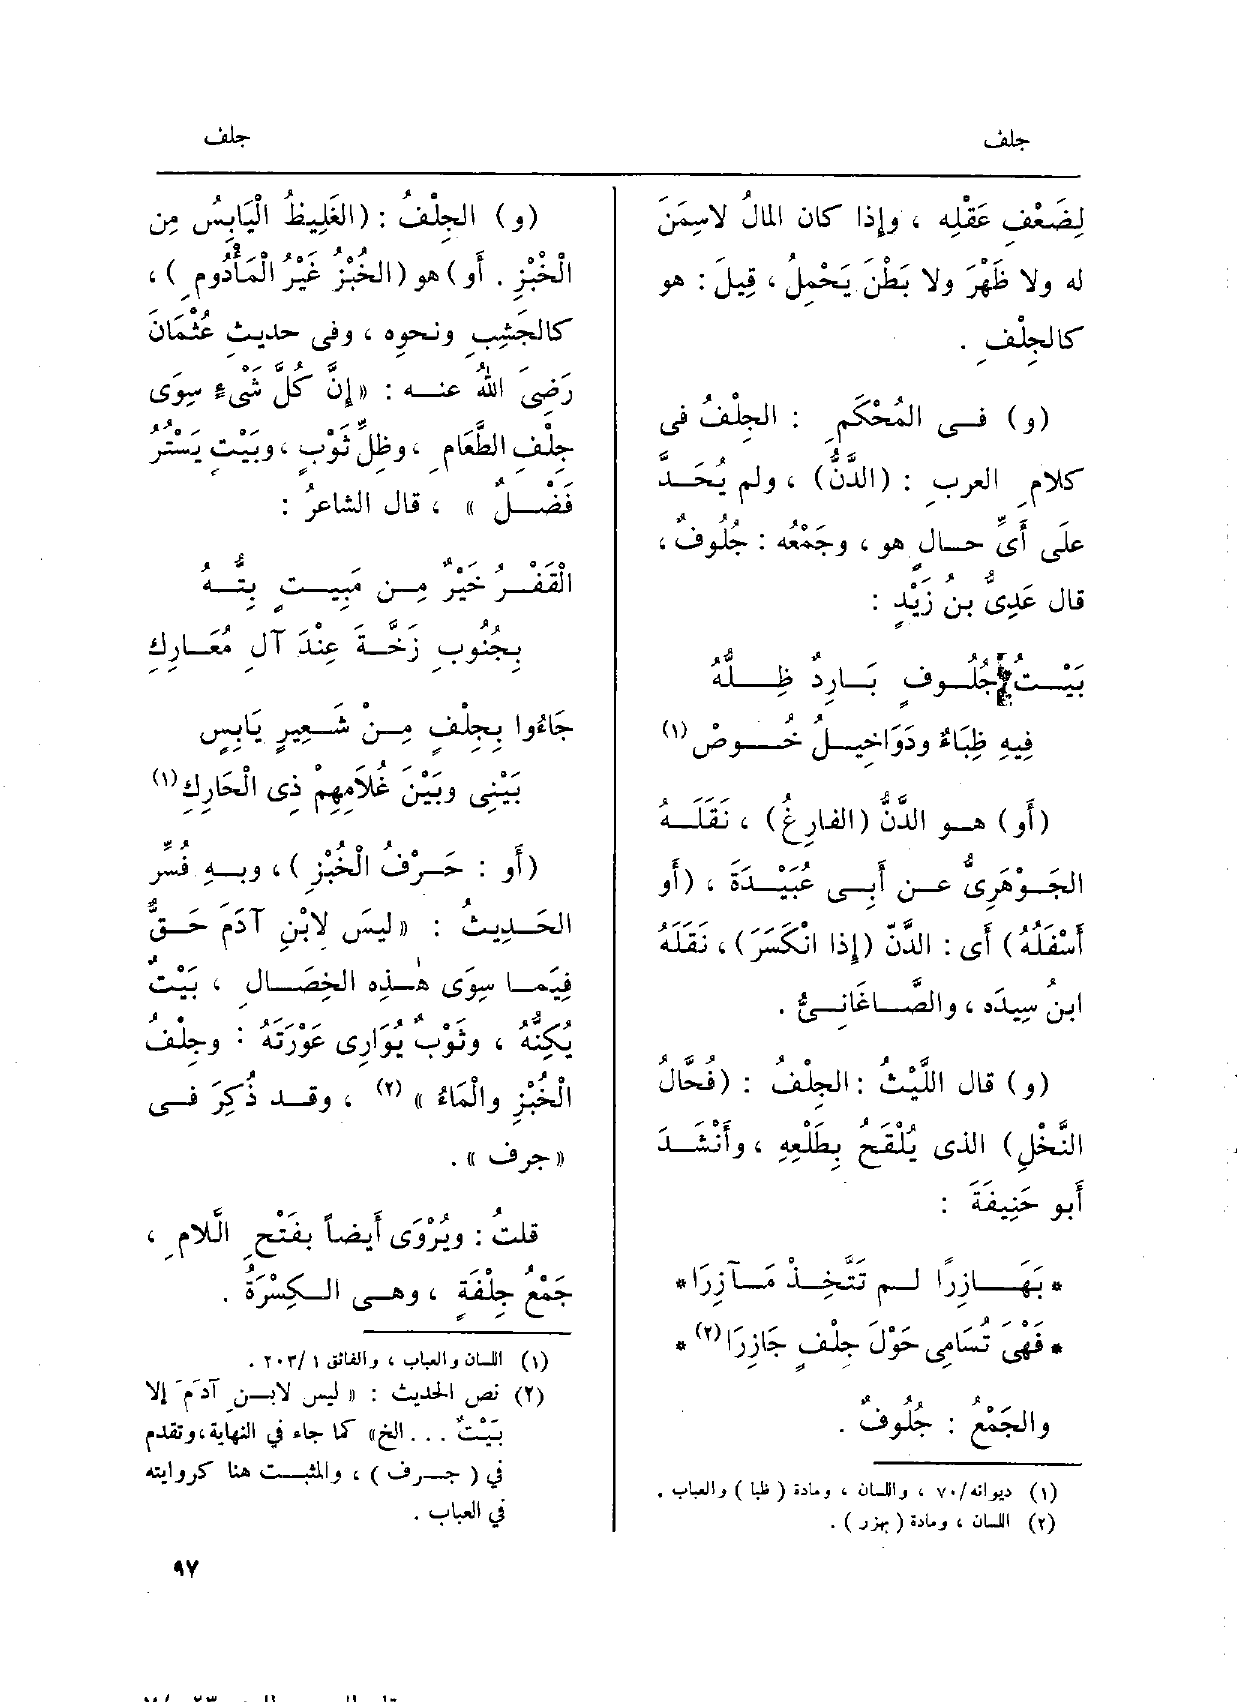 جلف
جلف
لِضَعْفِ عَقْلِه ، وإذا كان المالُ لاسِمَنَ
له ولا ظَهْرَ ولا بَطْنَ يَحْمِلُ ، قِيلَ : هو
كالجِلْفِ .
(و) فى المُحْكَمِ : الجِلْفُ فى
كلامِ العربِ : (الدَّنُّ) ، ولم يُحَدَّ
علَى أَىِّ حالٍ هو ، وجَمْعُه : جُلُوفٌ ،
قال عَدِىُّ بن زَيْدٍ :
بَيْتُ جُلُوفٍ بَارِدٌ ظِلُّهُ
فِيهِ ظِبَاءٌ ودَوَاخِيلُ خُوصْ (١)
(أَو) هو الدَّنُّ (الفارِغُ) ، نَقَلَهُ
الجَوْهَرِىُّ عن أَبِى عُبَيْدَةَ ، (أَو
أَسْفَلُهُ) أَى : الدَّنّ (إِذا انْكَسَرَ) ، نَقَلَهُ
ابنُ سِيدَه ، والصَّاغَانِىُّ .
(و) قال اللَّيْثُ : الجِلْفُ : (فُحَّالُ
النَّخْلِ) الذى يُلْقَحُ بِطَلْعِهِ ، وأَنْشَدَ
أَبو حَنِيفَةَ :
* بَهَازِرًا لم تَتَّخِذْ مَآزِرَا *
* فَهْىَ تُسَامِى حَوْلَ جِلْفٍ جَازِرَا (٢) *
والجَمْعُ : جُلُوفٌ .
(١) ديوانه/٧٠ ، واللسان ، ومادة ( ظبا ) والعباب .
(٢) اللسان ، ومادة ( بهزر ) .
(و) الجِلْفُ : (الغَلِيظُ الْيَابِسُ مِن
الْخُبْزِ . أَو) هو (الخُبْزُ غَيْرُ الْمَأْدُومِ ) ،
كالخَشِبِ ونحوِه ، وفى حديثِ عُثْمَانَ
رَضِىَ اللهُ عنه : « إِنَّ كُلَّ شَىْءٍ سِوَى
جِلْفِ الطَّعَامِ ، وظِلِّ ثَوْبٍ ، وبَيْتٍ يَسْتُرُ
فَضْلٌ » ، قال الشاعرُ :
الْقَفْرُ خَيْرٌ مِن مَبِيتٍ بِتُّهُ
بِجُنُوبِ زَخَّةَ عِنْدَ آلِ مُعَارِكِ
جَاءُوا بِجِلْفٍ مِنْ شَعِيرٍ يَابِسٍ
بَيْنِى وبَيْنَ غُلاَمِهِمْ ذِى الْحَارِكِ (١)
(أَو : حَرْفُ الْخُبْزِ ) ، وبهِ فُسِّرَ
الحَدِيثُ : « ليسَ لِابْنِ آدَمَ حَقٌّ
فِيمَا سِوَى هٰذِه الخِصَالِ ، بَيْتٌ
يُكِنُّهُ ، وثَوْبٌ يُوَارِى عَوْرَتَهُ : وجِلْفُ
الْخُبْزِ والْمَاءُ » (٢) ، وقد ذُكِرَ فى
« جرف » .
قلتُ : ويُرْوَى أَيضاً بفَتْحِ الَّلامِ ،
جَمْعُ جِلْفَةٍ ، وهى الكِسْرَةُ .
(١) اللسان والعباب ، والفائق ١ /٢٠٣ .
(٢) نص الحديث : « ليس لابنِ آدَمَ إلا
بَيْتٌ ... الخ» كما جاء في النهاية، وتقدم
في ( جرف ) ، والمثبت هنا كروايته
في العباب .
٩٧